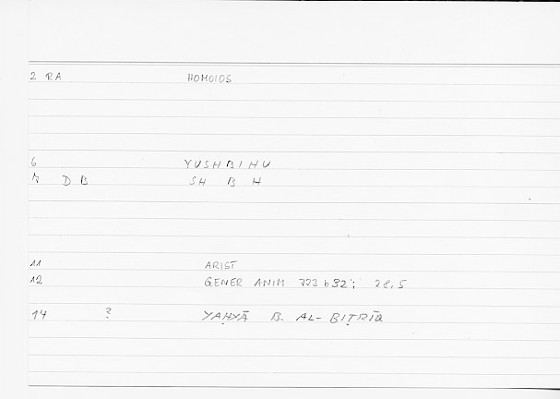 2 RA HOMOIOS
6 YUSHBIHU
7 D B SH B H
11 ARIST
12 GENER ANIM 723 b32; 28,5
14 ? YAḤYĀ B. AL-BIṬRĪQ